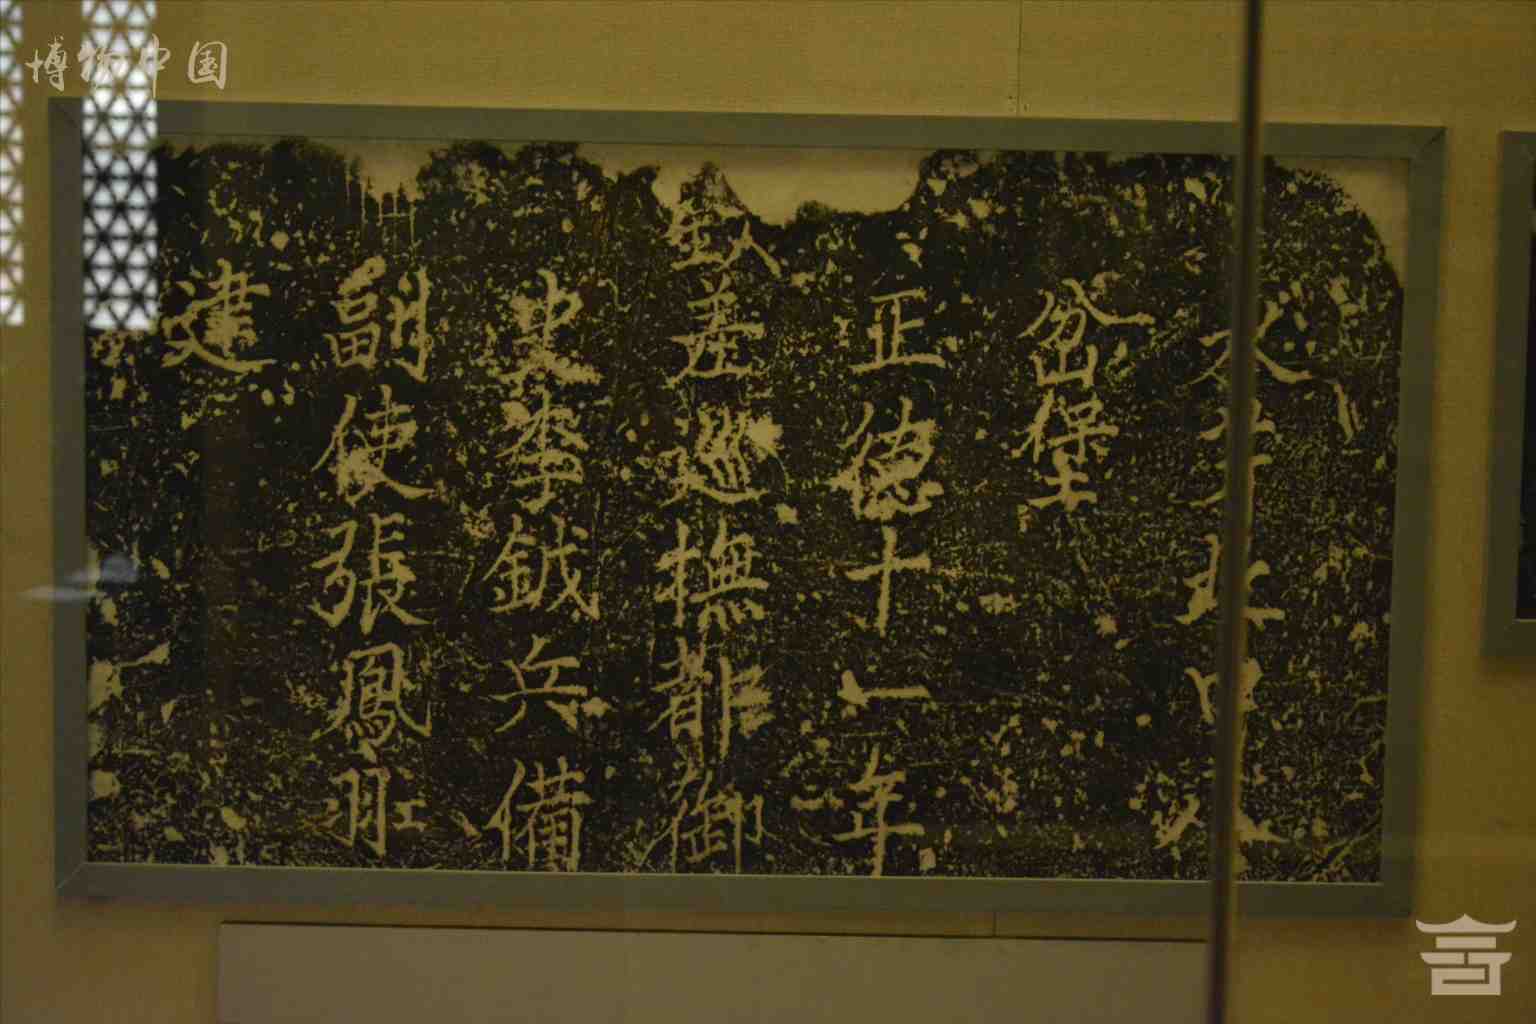 博物中国
北口
岔堡
正德十一年
欽差巡撫都御
史李鉞兵備
副使張鳳羾
建